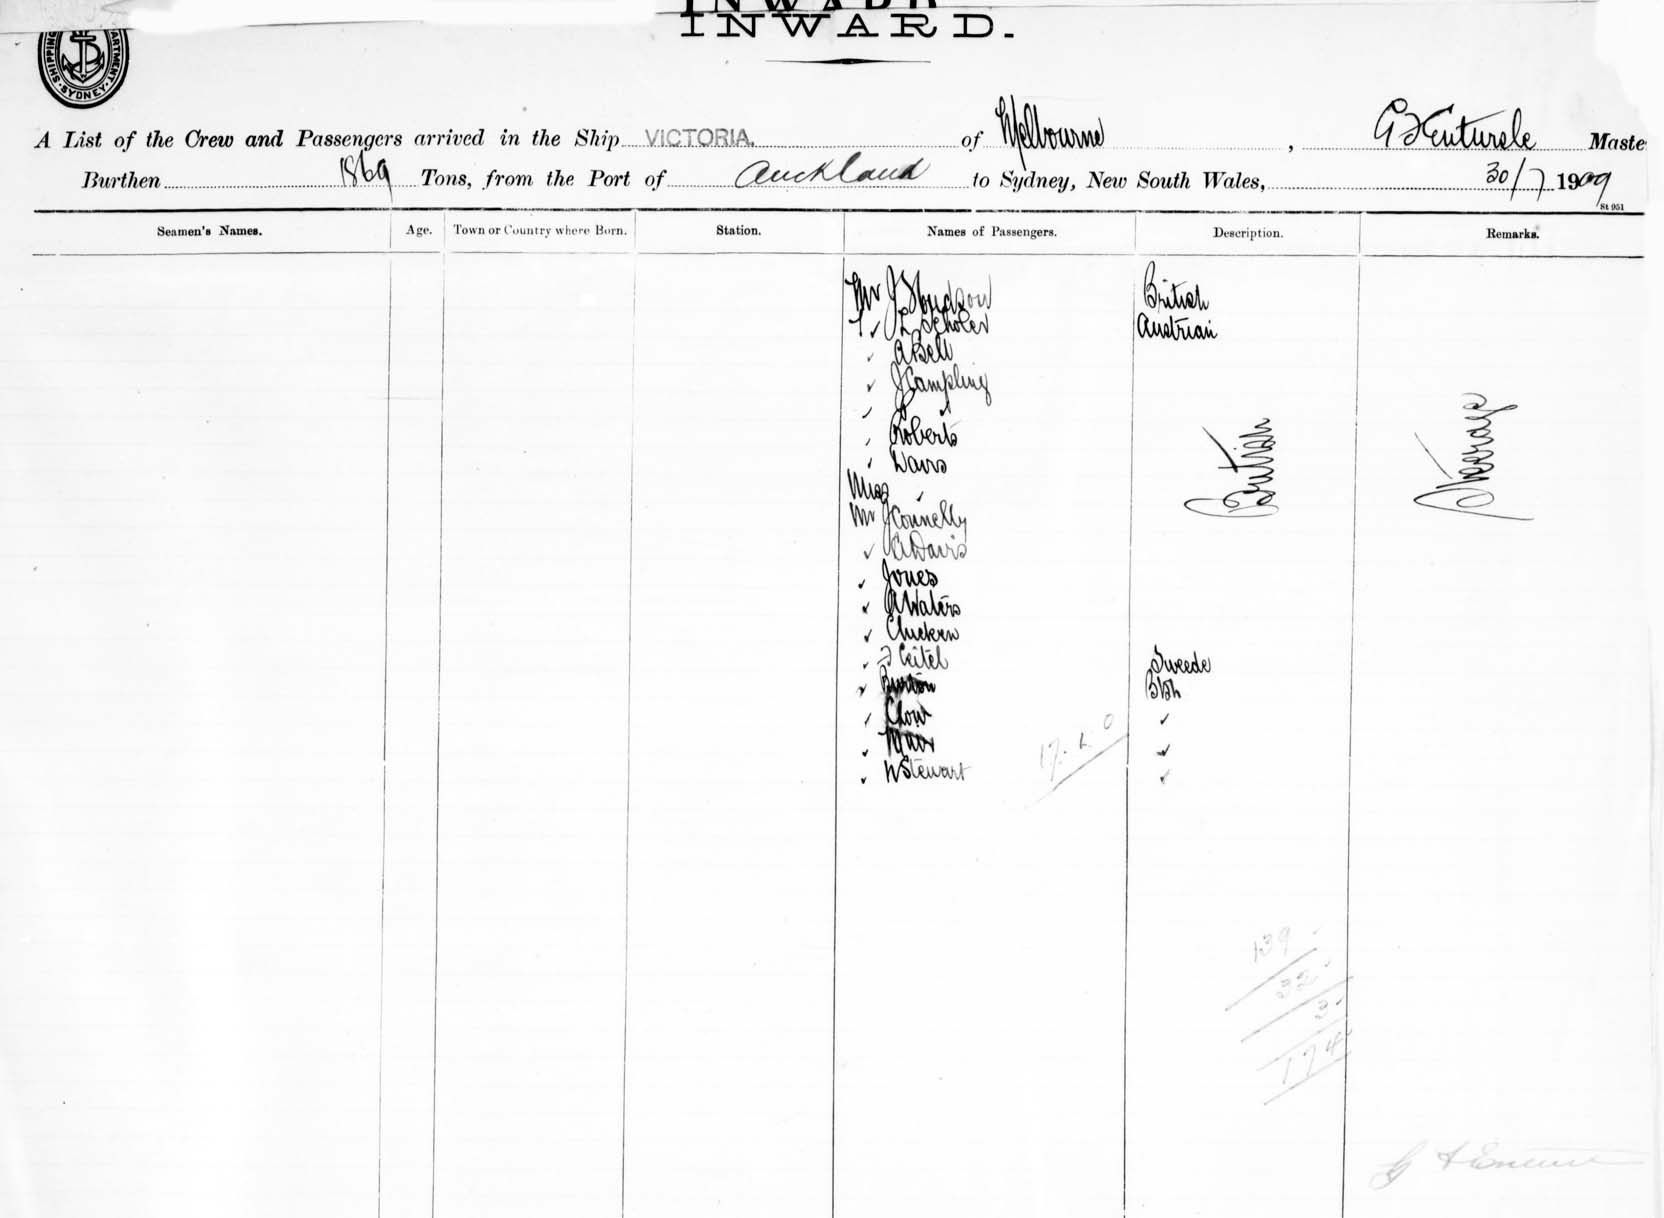 INWARD.
SHIPPING DEPARTMENT SYDNEY
A List of the Crew and Passengers arrived in the Ship VICTORIA. of Melbourne, Master
Burthen 1869 Tons, from the Port of Auckland to Sydney, New South Wales, 30/7 1909
St 951
Seamen's Names. Age. Town or Country where Born. Station. Names of Passengers. Description. Remarks.
Mr J Hudson British
L Scholer Austrian
✓ A Bell
✓ J Campling
✓ J ✓
✓ Roberts
✓ Davis
Miss ✓
Mr J Connelly
✓ A Davis
✓ Jones
✓ A Waters
✓ Chicken
✓ Swede
✓ Burton Btsh
✓ Chow ✓
✓ Muir ✓
✓ W Stewart ✓
British
Steerage
139
32
3
174